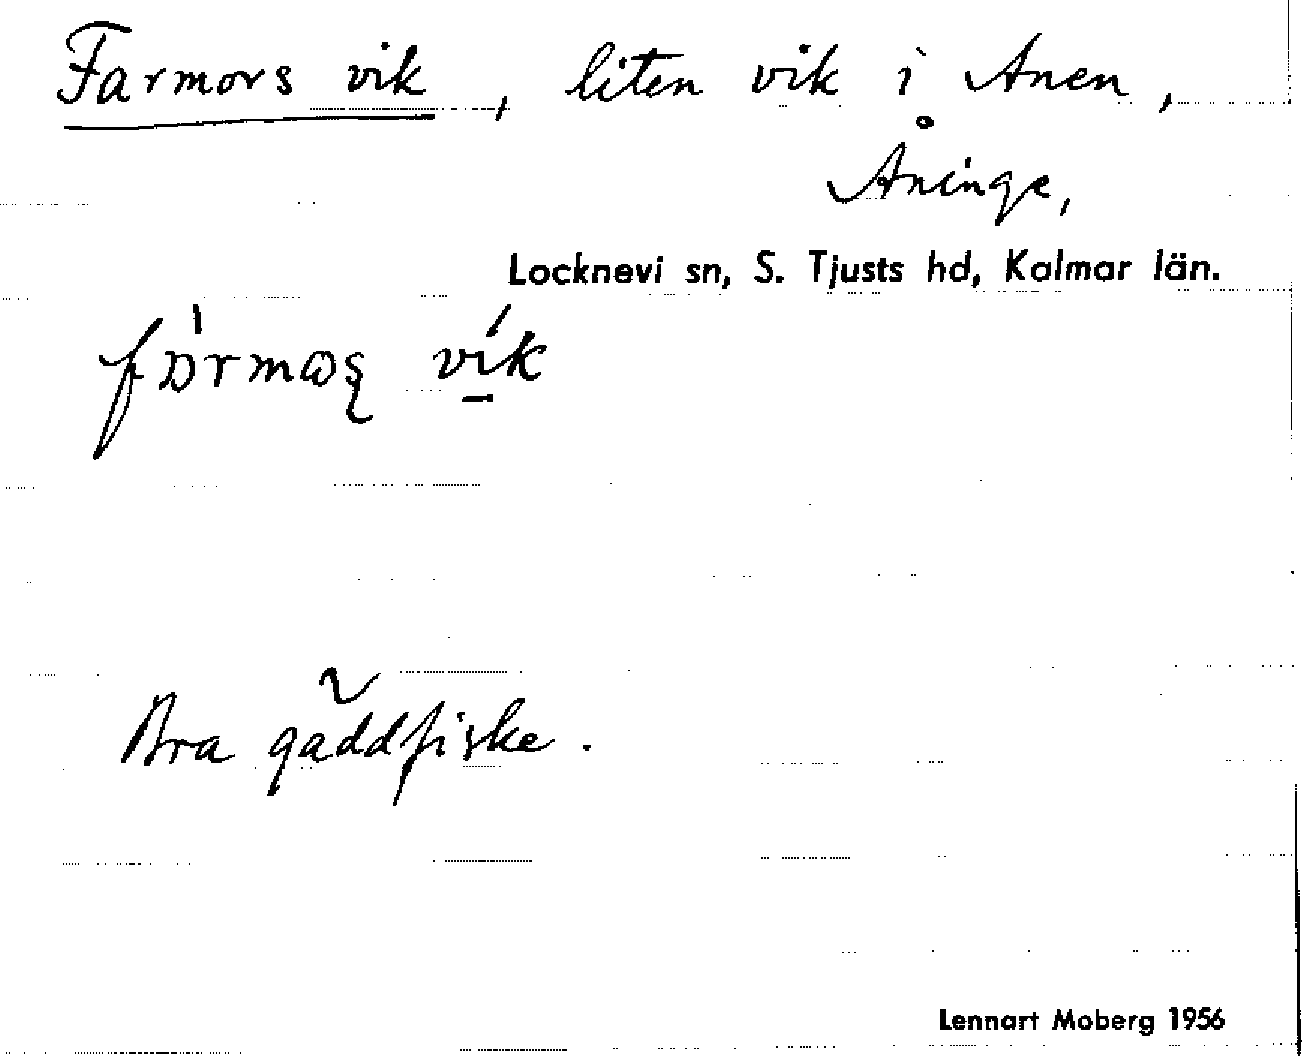 Farmors vik, liten vik i Anen,
Åninge,
Locknevi sn, S. Tjusts hd, Kalmar län.
vík
Bra gäddfiske.
Lennart Moberg 1956